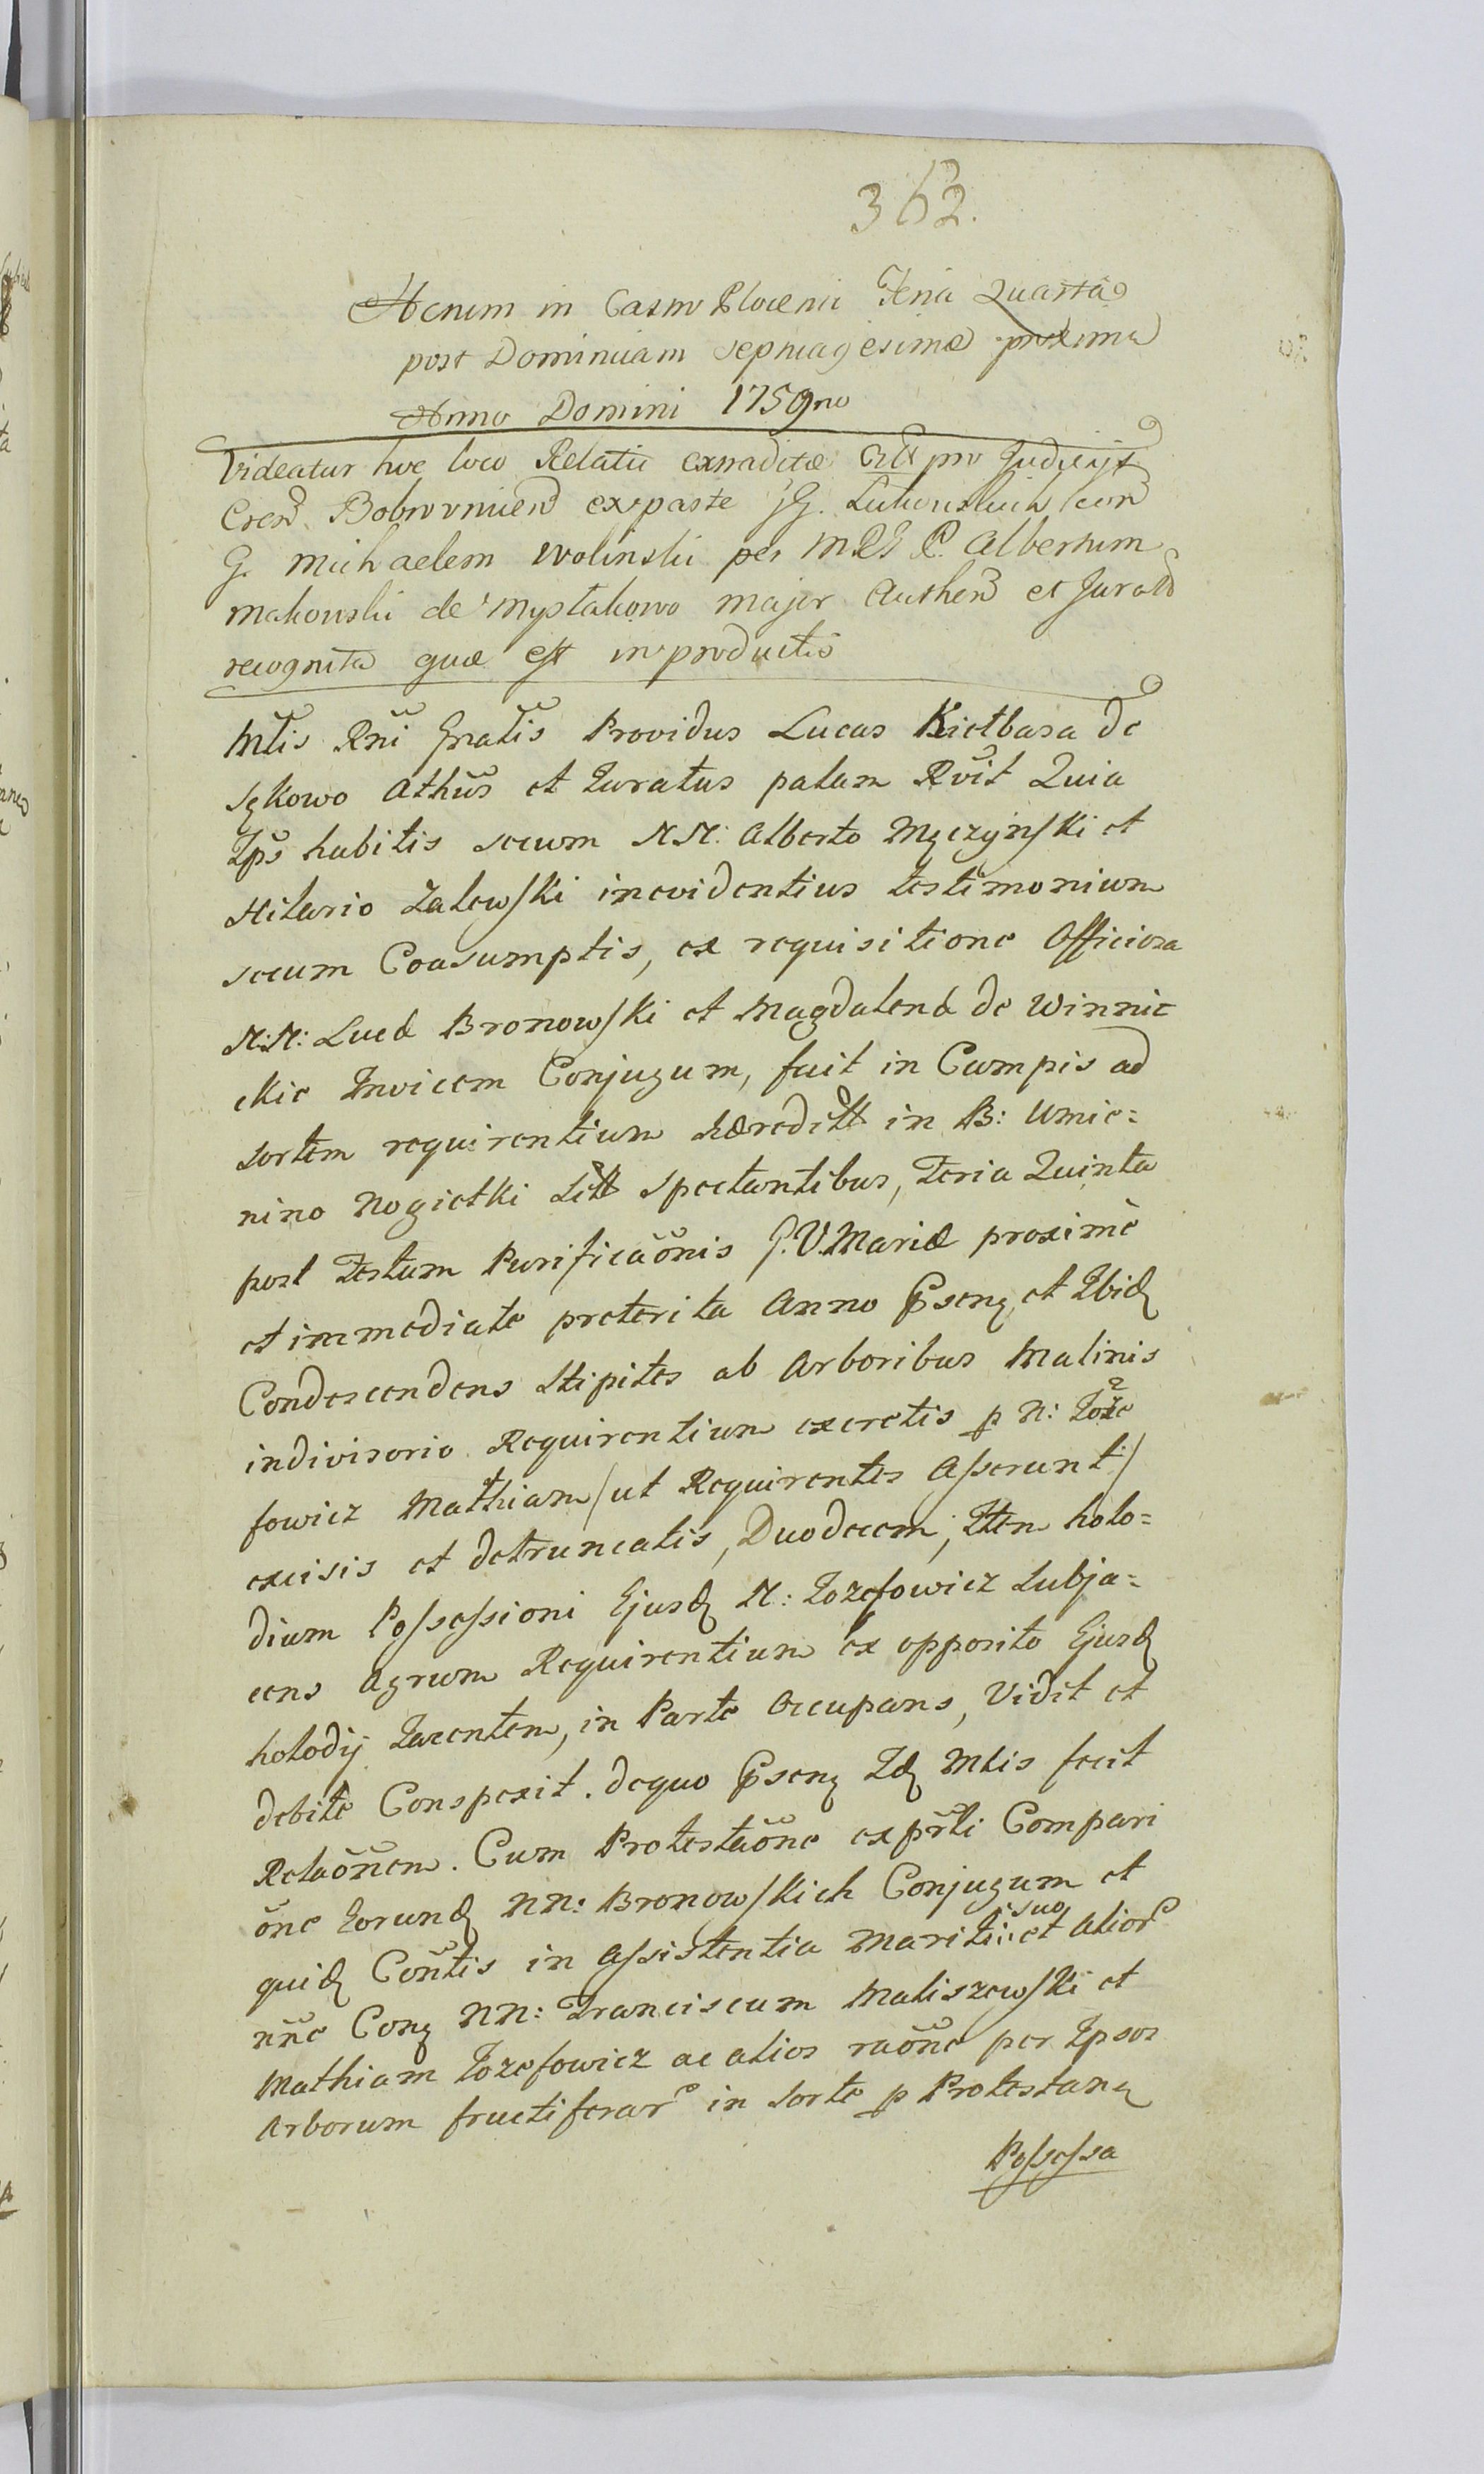 362.
Actum in Castro Plocensi Feria Quarta
post Dominicam Septuagesimæ proxima
Anno Domini 1759no
Videatur hoc loco Relatio extraditæ pro Judicijs
Bobrownicen ex parte GG. Lukowskich con
G. Michaelem Wolinski per Albertum
Makowski de Mystkowo major Authen et Jurato
recognita quæ est in productis
Mtis Rni Gnalis Providus Lucas Kiełbasa de
Sękowo Athūs et Juratus palam Rvit Quia
Ips habitis secum NN: Alberto Męczyński et
Hilario Zalewski inevidentius testimonium
secum Coasumptis, ex requisitione Officiosa
N:N: Lucæ Bronowski et Magdalenæ de Winnic
ckie Invicem Conjugum, fuit in Campis ad
Sortem requirentium hæreditt in B: Umie=
nino Nogietki Litt Spectantibus, Feria Quinta
post Festum Purificaōnis G.V.Mariæ proximè
et immediate preterita Anno Psenz et Ibidq
Condescendens Stipites ab Arboribus Malinis
indivisorio Requirentium excretis p N: Joze
fowicz Mathiam /ut Requirentes Asserunt/
excisis et detruncatis, Duodecem; Item holo=
dium Possessioni Ejusdq N: Jozefowicz Subja=
cens Agrum Requirentium ex opposito Ejusdq
holodij Jacentem, in Parte Occupans, Vidit et
debite Conspexit. dequo Psenz Idq Mtis fecit
Relaōnem. Cum Protestaōne ex pr̃ti Compari
ōne Eorundq NN: Bronowskich Conjugum et
quidq Contis in Assistentia Mariti suo et alior
nne Conz NN: Franciscum Maliszewski et
Mathiam Jozefowicz ac alios raōne per Ipsos
Arborum fructiferar in Sorte p Protestanz
Possessa